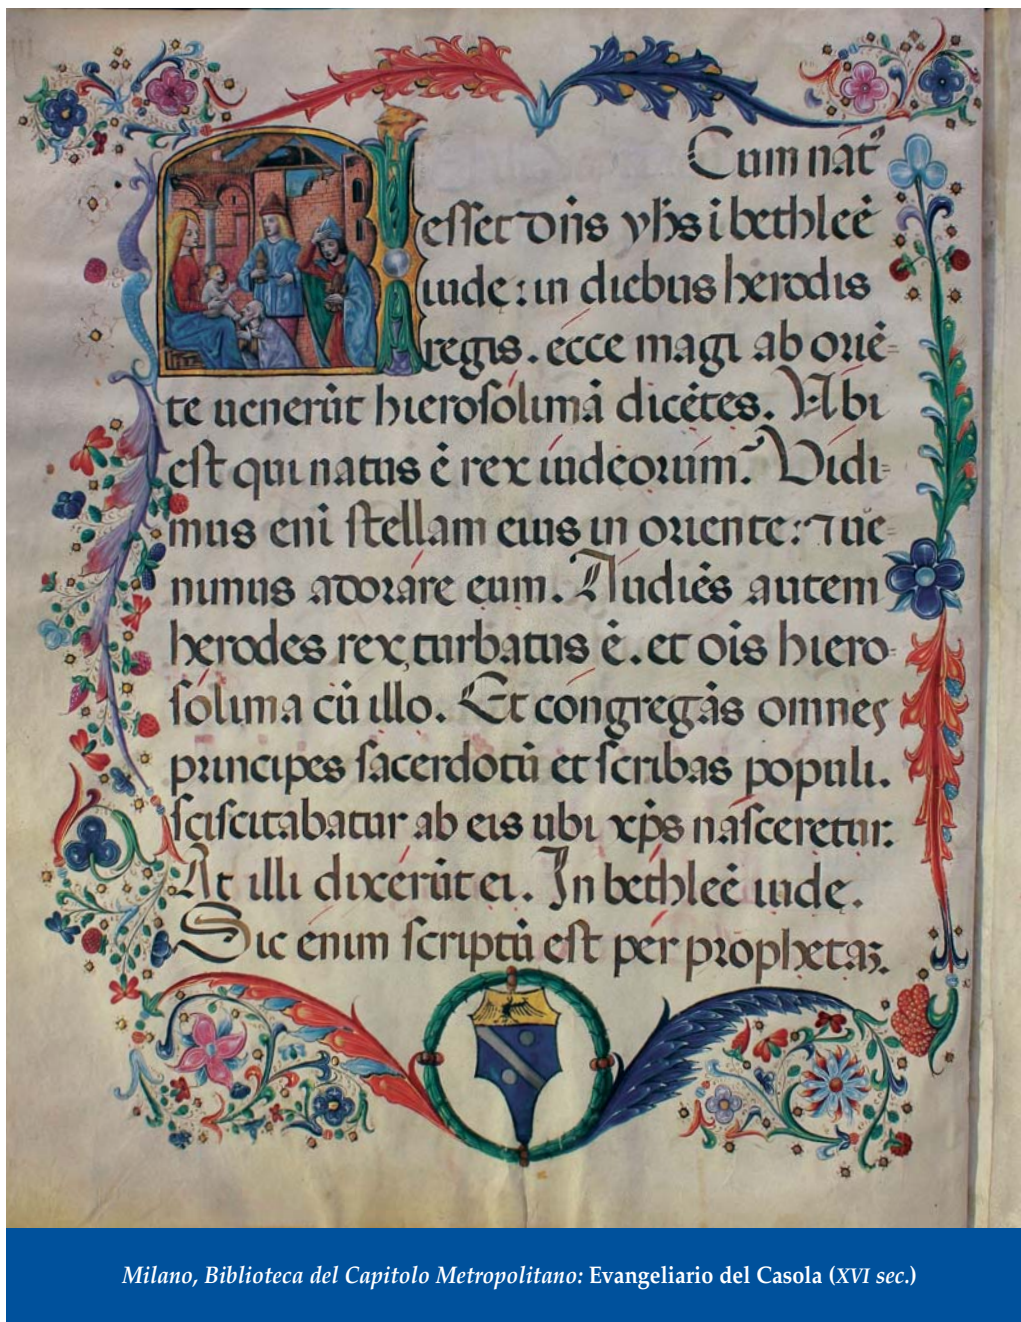 Cum nat᾽
esset dn̄s yh̄s i bethleē
iude : in diebus herodis
regis . ecce magi ab oriē=
te uenerūt hierosolimā dicētes. Vbi
est qui natus ē rex iudeorum? Vidi=
mus enī stellam eius in oriente : ⁊ ue=
nimus adorare eum. Audiēs autem
herodes rex, turbatus ē. et oīs hiero=
solima cū illo. Et congregās omnes
principes sacerdotū et scribas populi.
sciscitabatur ab eis ubi xp̄s nasceretur.
At illi dixerūt ei. In bethleē iudę.
Sic enim scriptū est per prophetaꝫ.
Milano, Biblioteca del Capitolo Metropolitano: Evangeliario del Casola (XVI sec.)